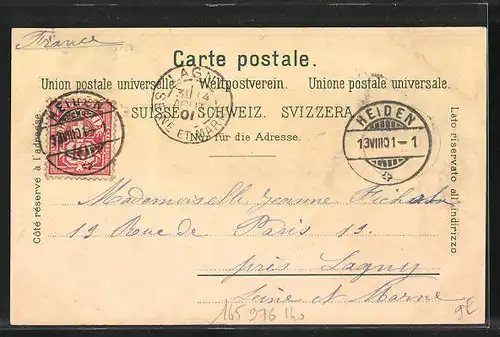 France
Carte postale.
Union postale universelle. Weltpostverein. Unione postale universale.
SUISSE. SCHWEIZ. SVIZZERA.
Nur für die Adresse.
Côté réservé à l'adresse.
Lato riservato all'indirizzo.
HEIDEN
13VIII01-1
HEIDEN
LAGNY
01
SNE ET MARNE
Mademoiselle Jeanne
19 Rue de Paris 19.
près Lagny
Seine et Marne
165 976 140